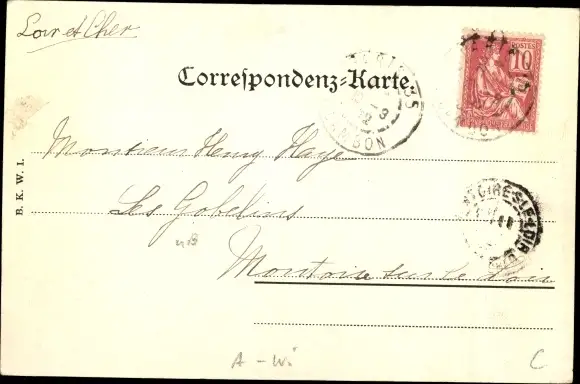 Loir et Cher
Correspondenz-Karte.
POSTES
10
BON
B. K. W. I.
Monsieur Henry Haye
Les Gobelins
Montoire sur le Loir
A - Wi
C